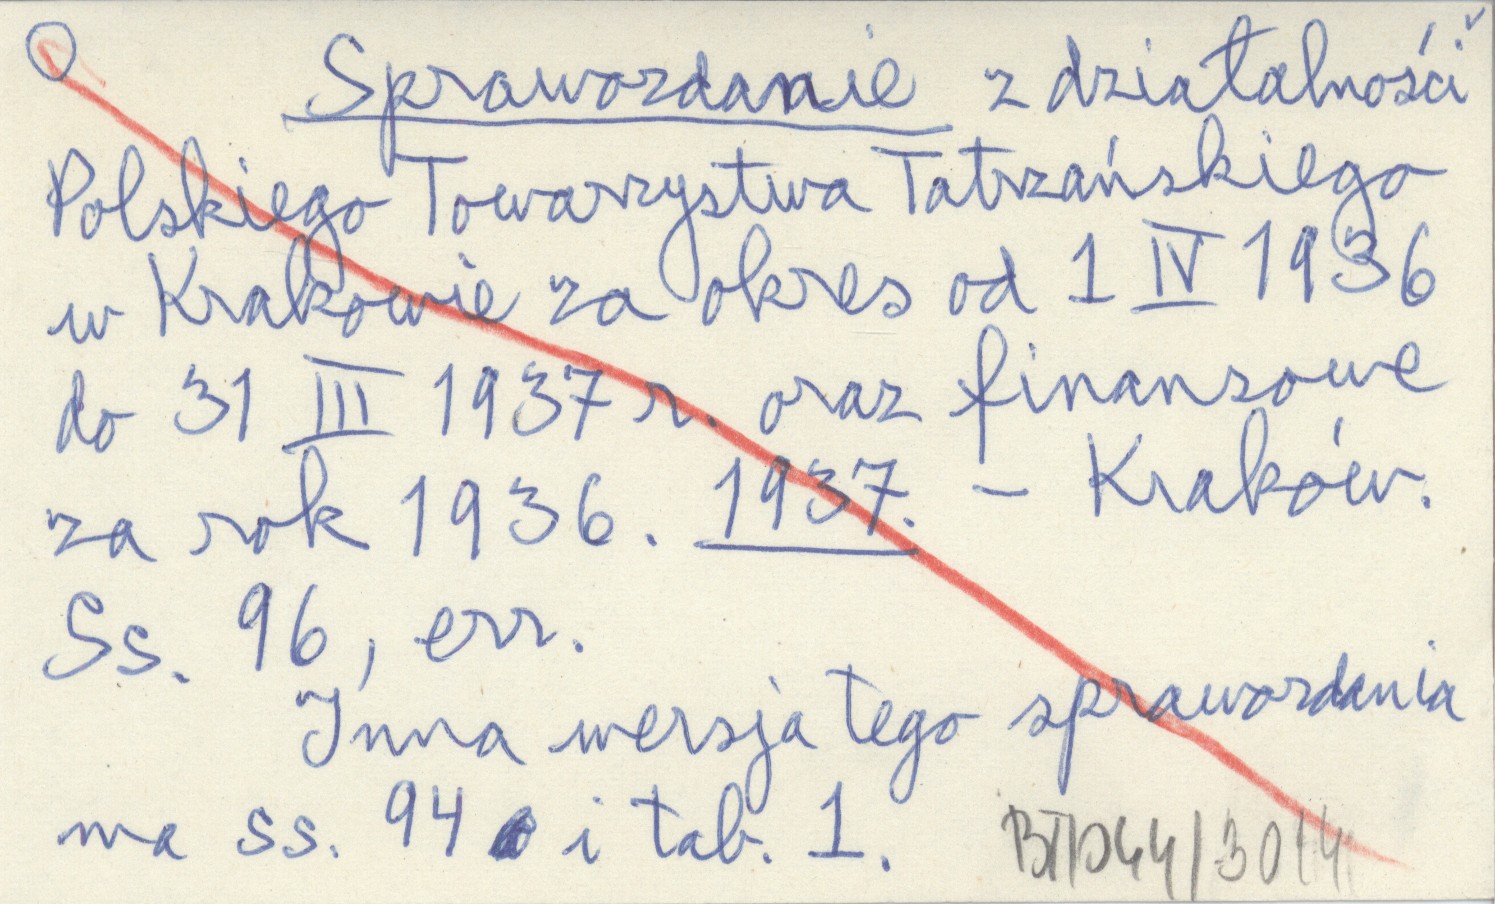 Sprawozdanie z działalności
Polskiego Towarzystwa Tatrzańskiego
w Krakowie za okres od 1 IV 1936
do 31 III 1937 r. oraz finansowe
za rok 1936. 1937. – Kraków.
Ss. 96, err.
Inna wersja tego sprawozdania
ma ss. 94 i tab. 1.